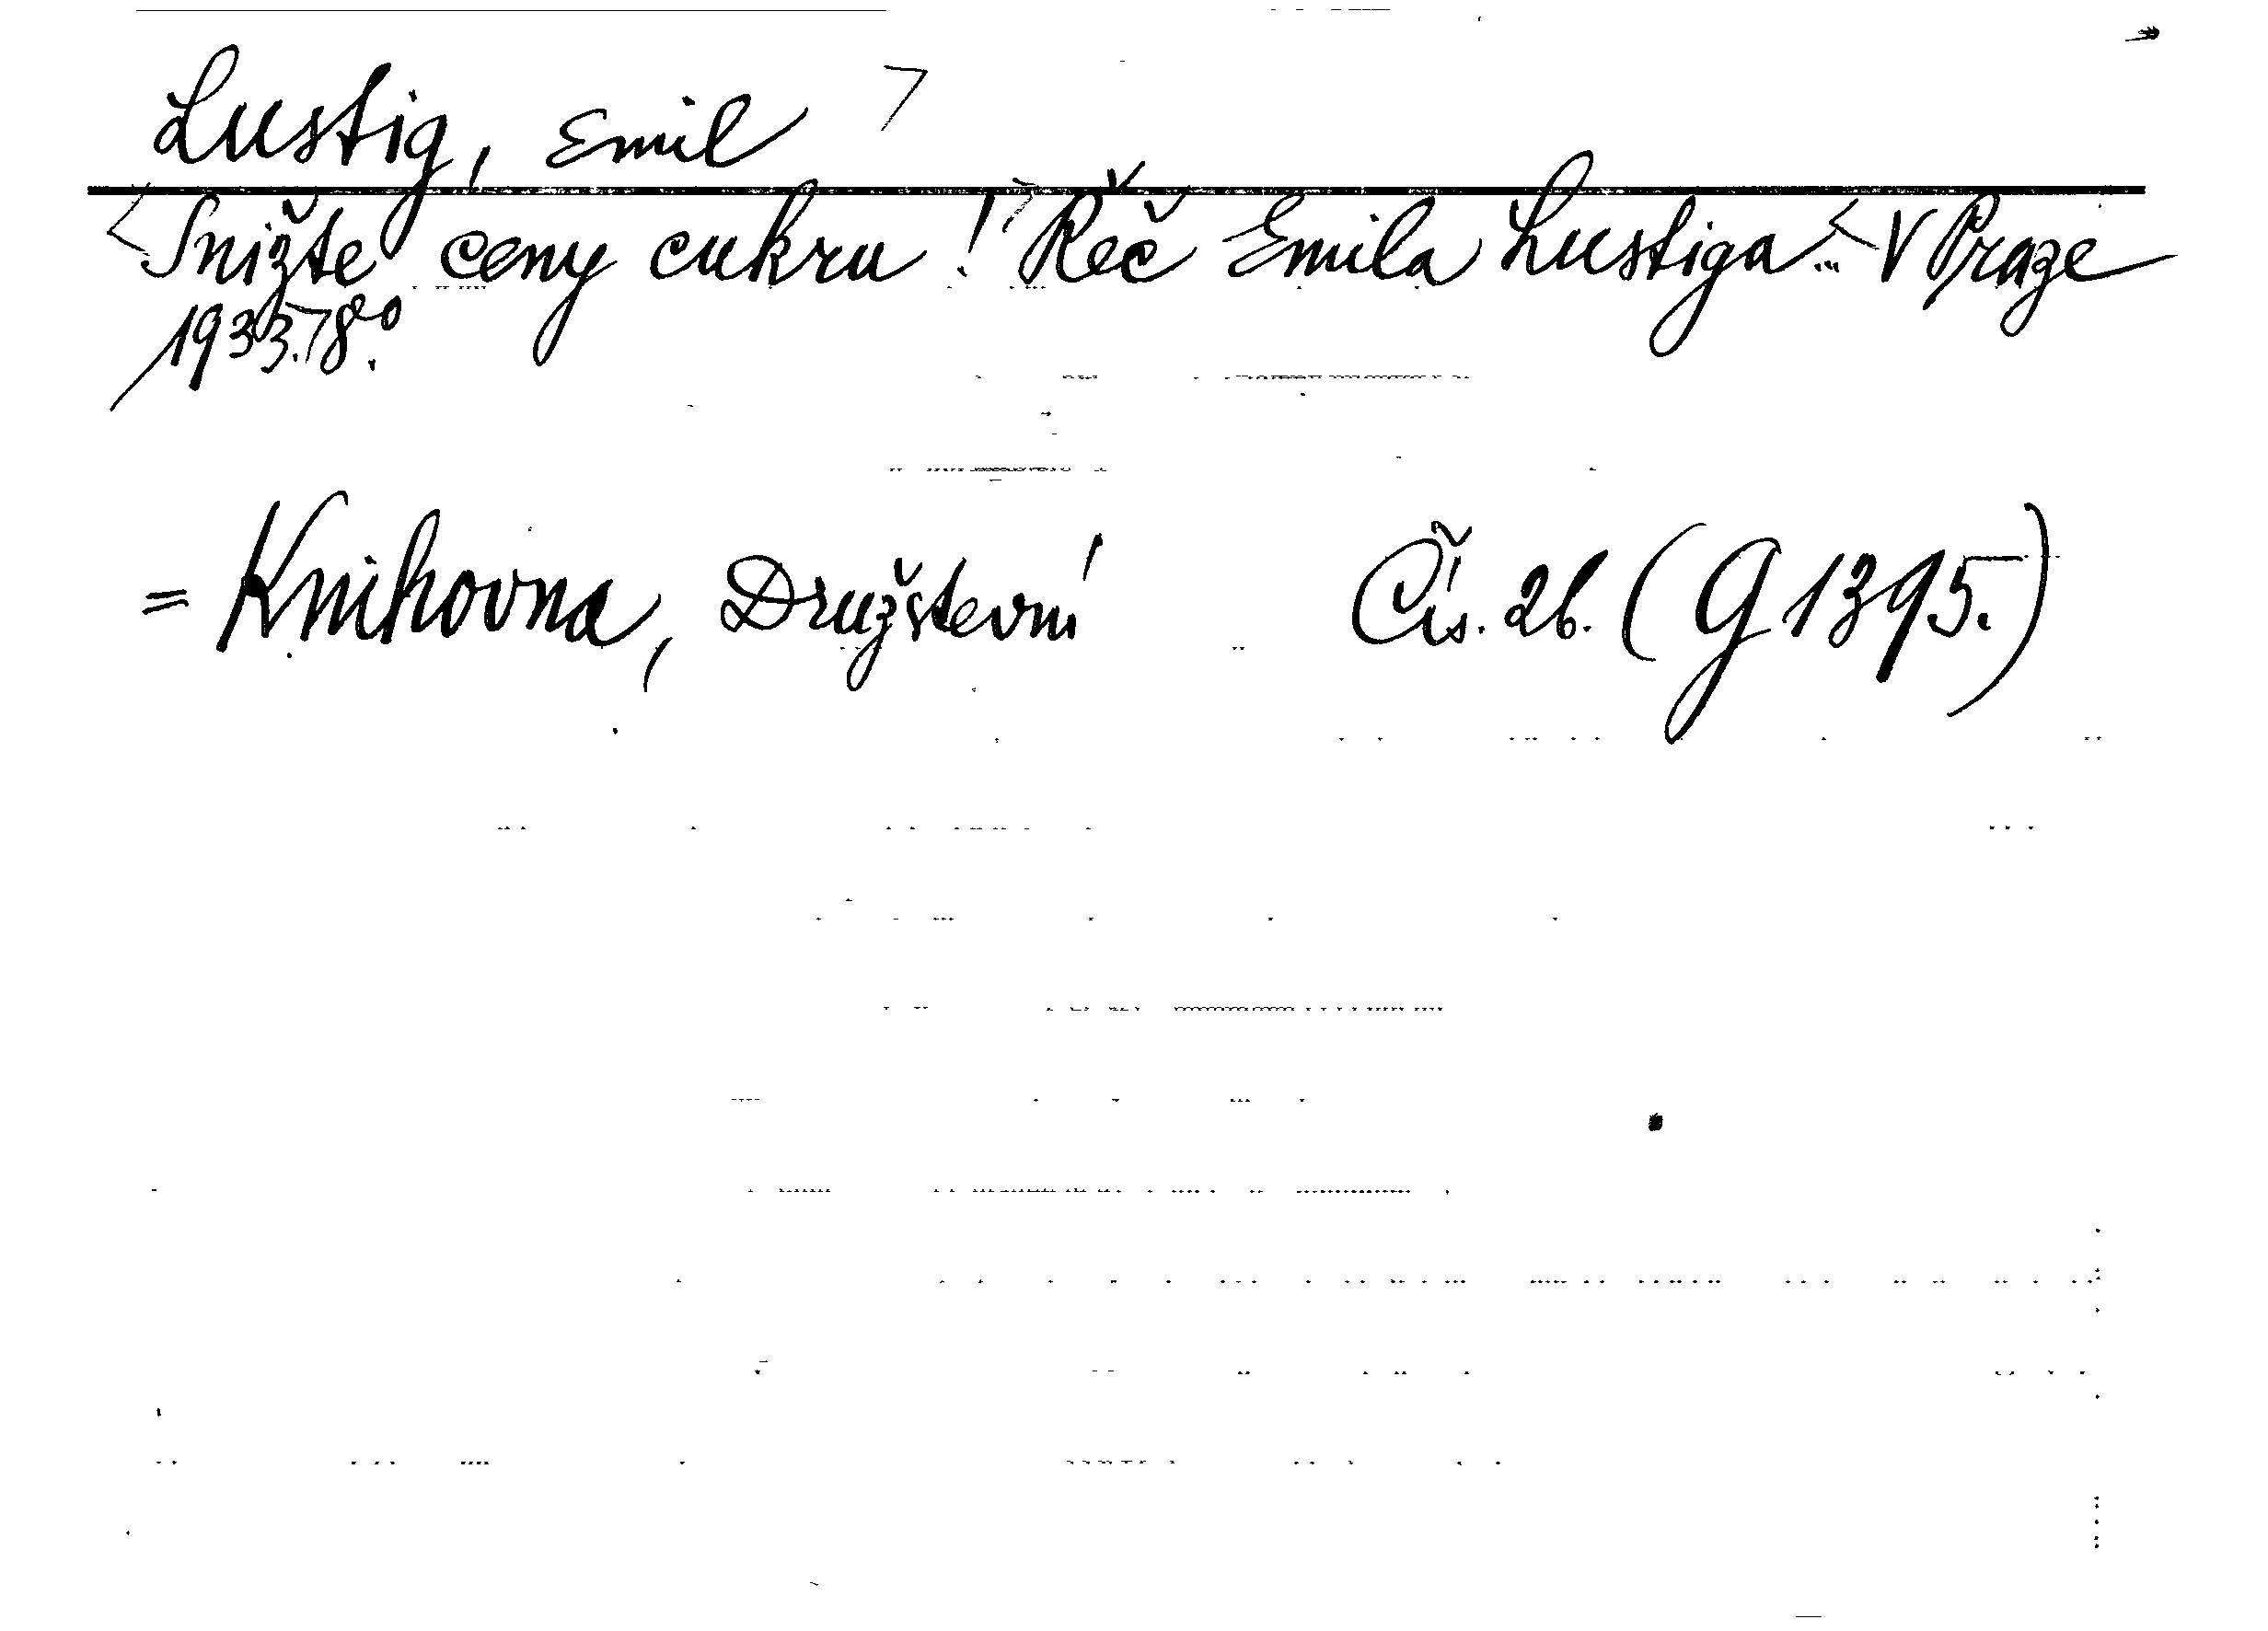 Lustig, Emil
Snižte ceny cukru! Řeč Emila Lustiga... V Praze
1933. 8°.
= Knihovna, Družstevní Čís. 26. (G 1395.)